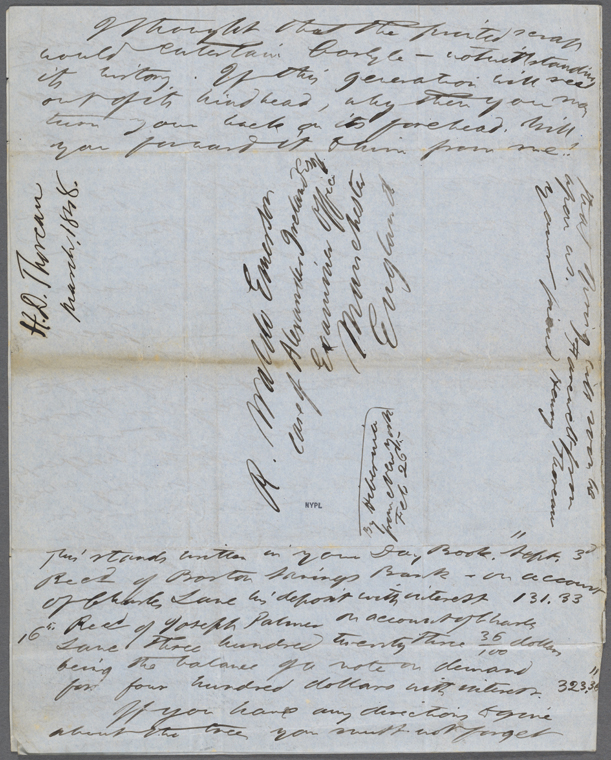 I thought that the printed scrap
would entertain Carlyle – notwithstanding
its history. If this generation will see
out of its hindhead, why then you may
turn your back on its forehead. Will
you forward it to him from me?
H.D. Thoreau
March, 1848.
R. Waldo Emerson
Care of Alexander Ireland Esq
Examiner Office
Manchester
England
By Hibernia
from New York
Feb 26th
NYPL
This stands written in your Day Book. "Sept. 3d
Recd of Boston Savings Bank – on account
of Charles Lane his deposit with interest 131.33
16th Recd of Joseph Palmer on account of Charles
Lane three hundred twenty three 36/100 dollars
being the balance of a note on demand
for four hundred dollars with interest 323.36"
If you have any directions to give
about the trees you must not forget
that spring will soon be
upon us. Farewell from
your friend Henry Thoreau